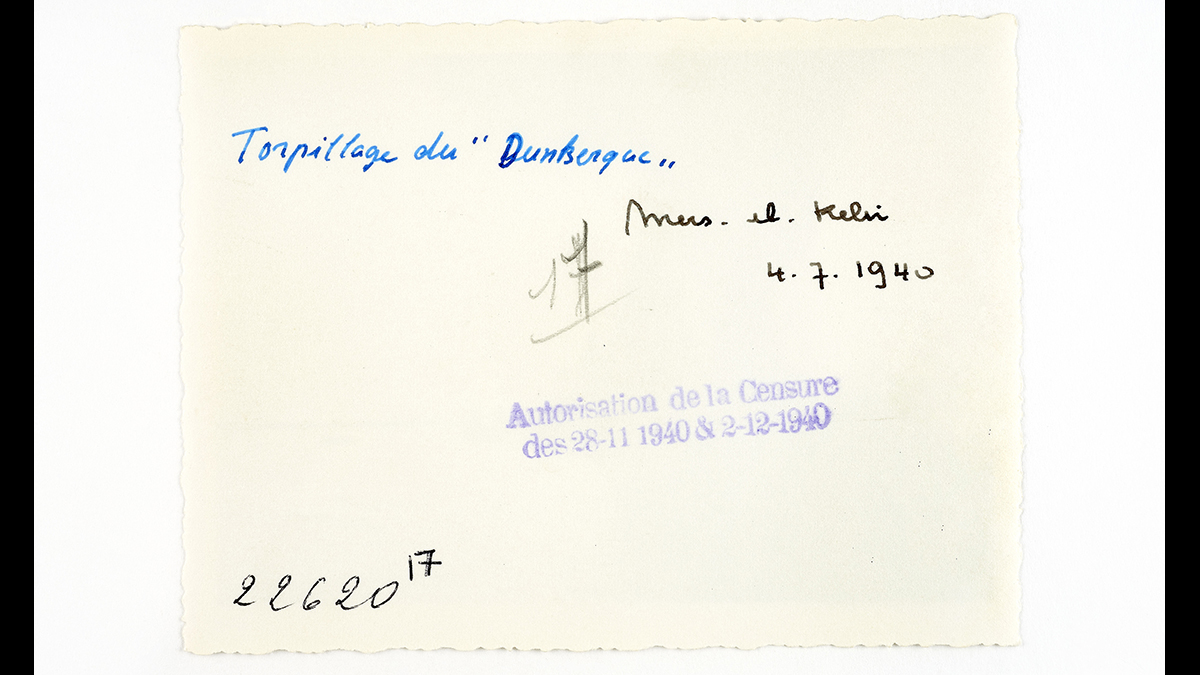 Torpillage du "Dunkerque„
Mers. el. Kebir
4. 7. 1940
17
Autorisation de la Censure
des 28-11 1940 & 2-12-1940
22620 17